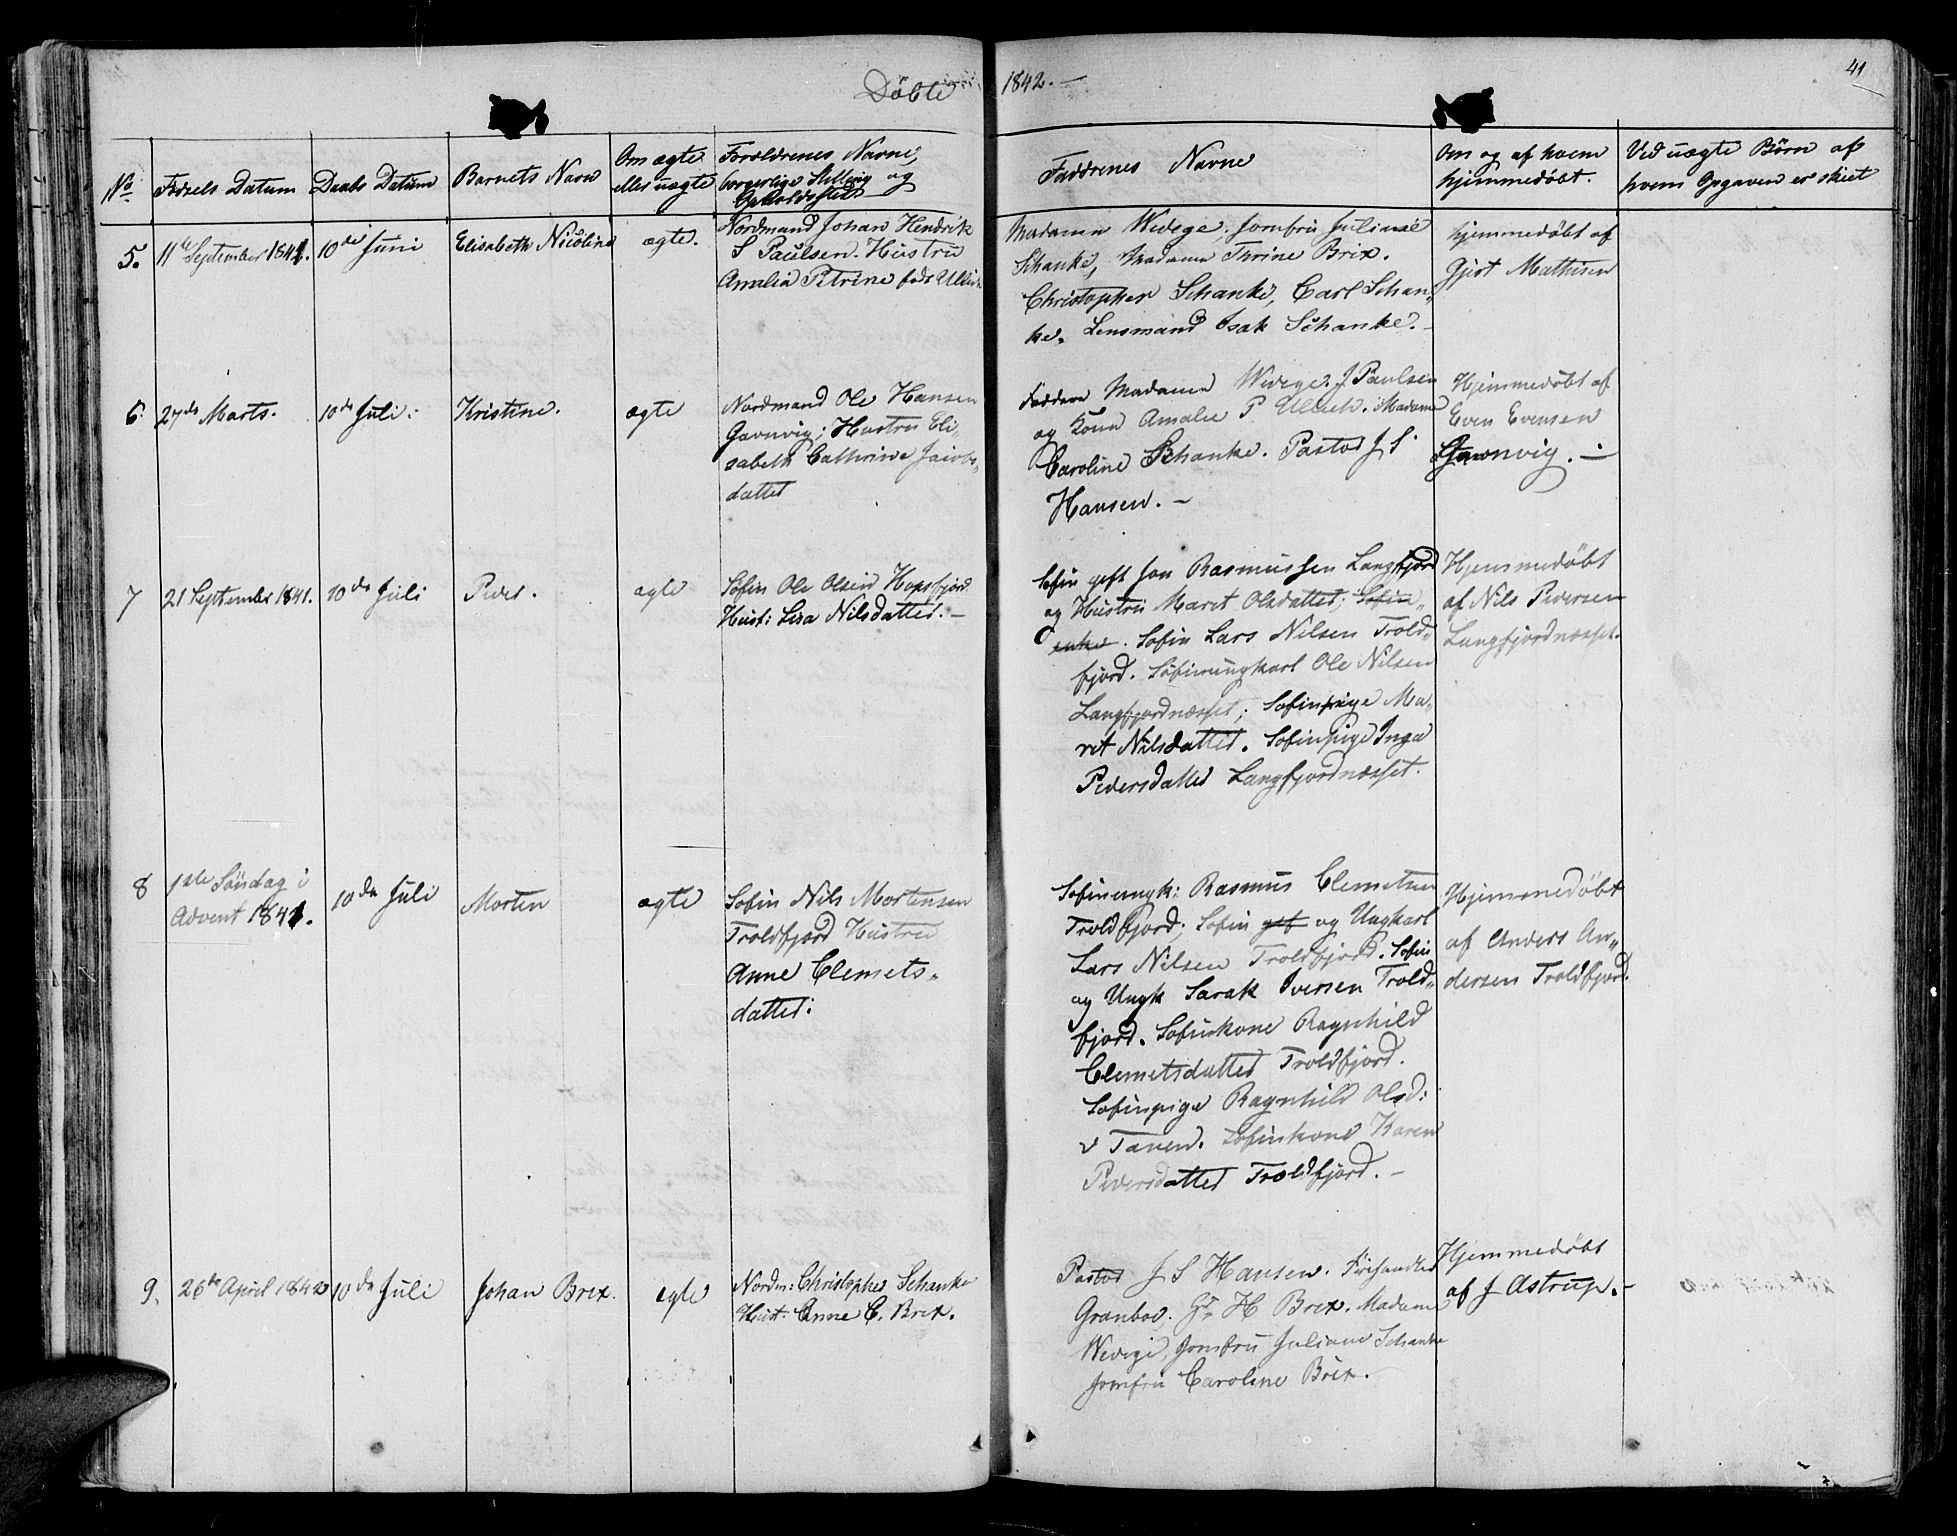 Döbte
1842.
41
No
Fødsels Datum
Daabs Datum
Barnets Navn
Om ægte
eller uægte
Forældrenes Navne,
borgerlige Stilling og
Opholdssted
Faddrenes Navne
Om og af hvem
hjemmedøbt.
Ved uægte Børn af
hvem Opgaven er skeet
5.
11te September 1841.
10de Juni
Elisabeth Nicoline
ægte.
Nordmand Johan Hendrik
S Paulsen. Hustru
Amalia Petrine født
Madame Wedege. Jomfru Juliane
Schanke, Madame Thrine Brix.
Christopher Schanke, Carl Schan-
ke. Lensmand Isak Schanke.
hjemmedøbt af
Gjert Mathisen
6.
27de Marts.
10de Juli.
Kristine.
ægte
Nordmand Ole Hansen
Gavnvig; Hustru Eli-
sabeth Cathrine Jacobs-
datter
Faddere Madame Wedege. J Paulsen
og Kone Amalie P Ulich. Madame
Caroline Schanke. Pastor J S
Hansen. -
Hjemmedøbt af
Even Evensen
Gavnvig. -
7
21 September 1841.
10de Juli
Peder.
ægte
Søfin Ole Olsen Hopsfjord
Hust: Lisa Nilsdatter. -
Søfin gift Jon Rasmussen Langfjord
og Hustru Maret Olsdatter; Søfin
enke. Søfin Lars Nilsen Trold-
fjord. Søfinungkarl Ole Nilsen
Langfjordnæsset; Søfinpige Ma-
ret Nilsdatter. Søfinpige Inga
Pedersdatter Langfjordnæsset.
Hjemmedøbt
af Nils Pedersen
Langfjordnæsset.
8
1ste Søndag i
Advent 1841.
10de Juli
Morten
ægte
Søfin Nils Mortensen
Troldfjord Hustru
Anne Clemets-
datter.
Søfinungk: Rasmus Clemetsen
Troldfjord; Søfin gift og Ungkarl
Lars Nilsen Troldfjord. Søfin
og Ungk Sarak Iversen Trold-
fjord. Søfinkone Ragnhild
Clemetsdatter Troldfjord.
Søfinpige Ragnhild Olsd:
v Tanen. Søfinkone Karen
Pedersdatter Troldfjord. -
Hjemmedøbt
af Anders An-
dersen Troldfjord.
9.
26de April 1842
10de Juli
Johan Brix.
ægte
Nordm: Christopher Schanke
Hust: Anne C. Brix.
Pastor J S Hansen.
H Brix. Madame
Wedege, Jomfru Juliane Schanke
Jomfru Caroline Brix.
Hjemmedøbt
af J Astrup. -